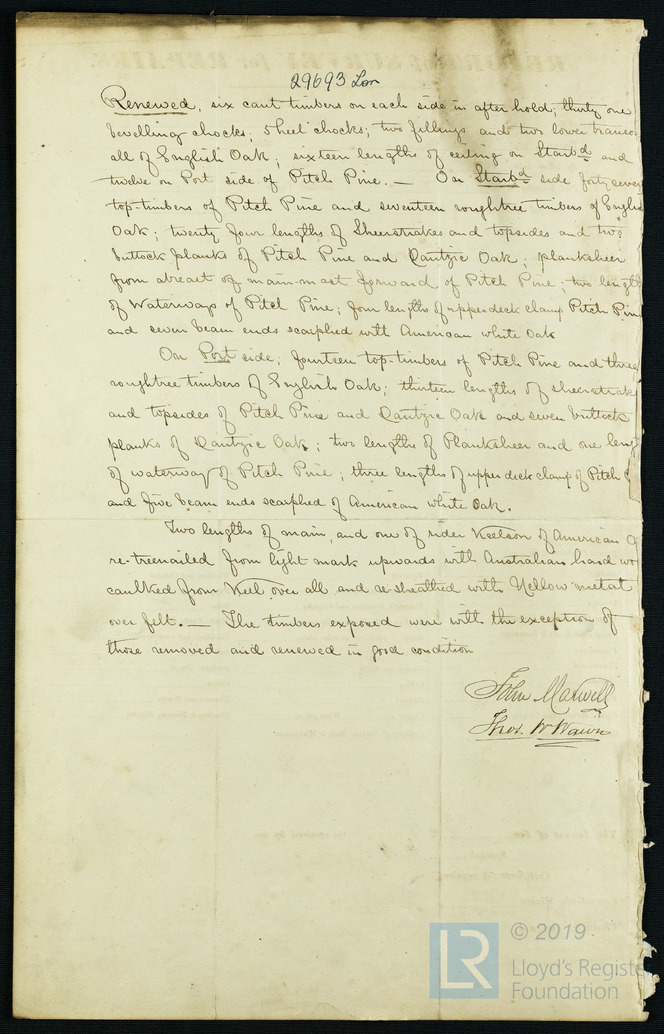 29693 Lon
Renewed; six cant timbers on each side in after hold; thirty one
bevelling chocks; 5 heel chocks; two fillings and two lower transo
all of English Oak; sixteen lengths of ceiling on Starbd and
twelve on Port side of Pitch Pine. — On Starbd side forty seven
top-timbers of Pitch Pine and seventeen roughtree timbers of Englis
Oak; twenty four lengths of Sheerstrakes and topsides and two
buttock planks of Pitch Pine and Dantzic Oak; planksheer
from abreast of main-mast forward of Pitch Pine; two length
of Waterways of Pitch Pine; four lengths of upperdeck clamp Pitch Pin
and seven beam ends scarphed with American white Oak
On Port side; fourteen top-timbers of Pitch Pine and three
roughtree timbers of English Oak; thirteen lengths of sheerstrak
and topsides of Pitch Pine and Dantzic Oak and seven buttock
planks of Dantzic Oak; two lengths of Planksheer and one leng
of waterway of Pitch Pine; three lengths of upper deck clamp of Pitch
and five beam ends scarphed of American white Oak.
Two lengths of main, and one of rider Keelson of American O
re-treenailed from light mark upwards with Australian hard wo
caulked from Keel over all and re sheathed with Yellow metal
over felt. — The timbers exposed were with the exception of
those removed and renewed in good condition
John Maxwell
Thos. W Wawn
LR © 2019
Lloyd's Registe
Foundation